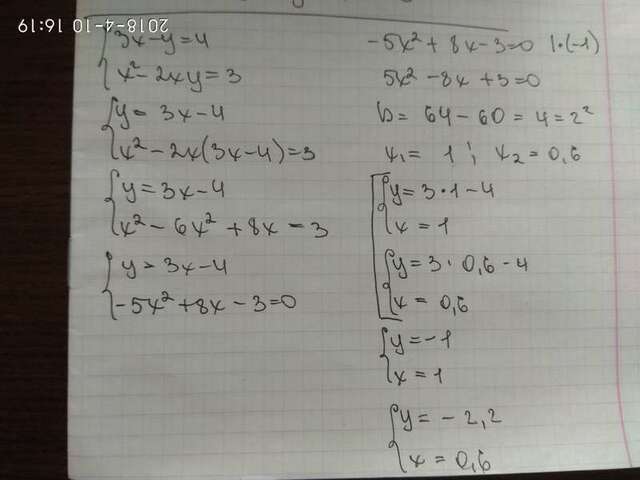 2018-4-10 16:19
{3x-y=4
x²-2xy=3
{y=3x-4
x²-2x(3x-4)=3
{y=3x-4
x²-6x²+8x=3
{y=3x-4
-5x²+8x-3=0
-5x²+8x-3=0 |·(-1)
5x²-8x+3=0
D=64-60=4=2²
x₁=1; x₂=0,6
[{y=3·1-4
x=1
{y=3·0,6-4
x=0,6
{y=-1
x=1
{y=-2,2
x=0,6